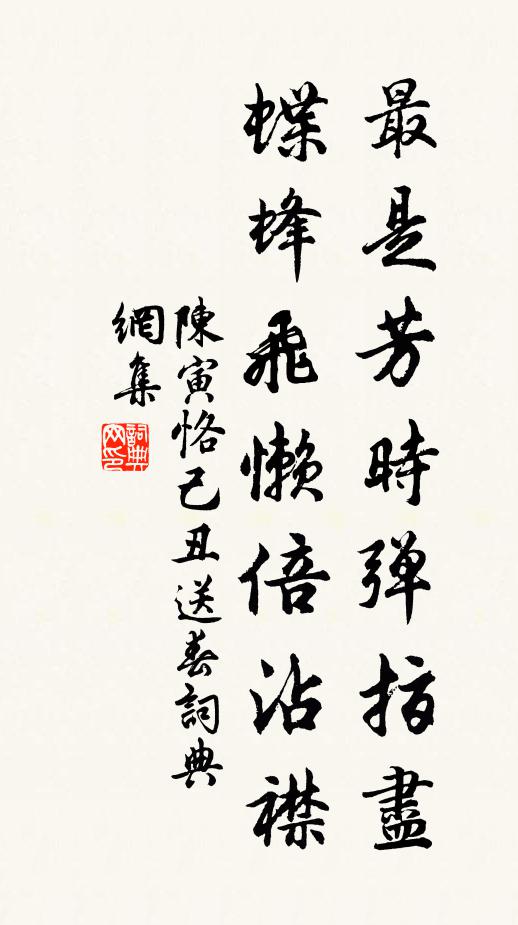 最是芳時弹指盡
蝶蜂飛懶倍沾襟
陳寅恪己丑送春詞典
網集
詞典网印